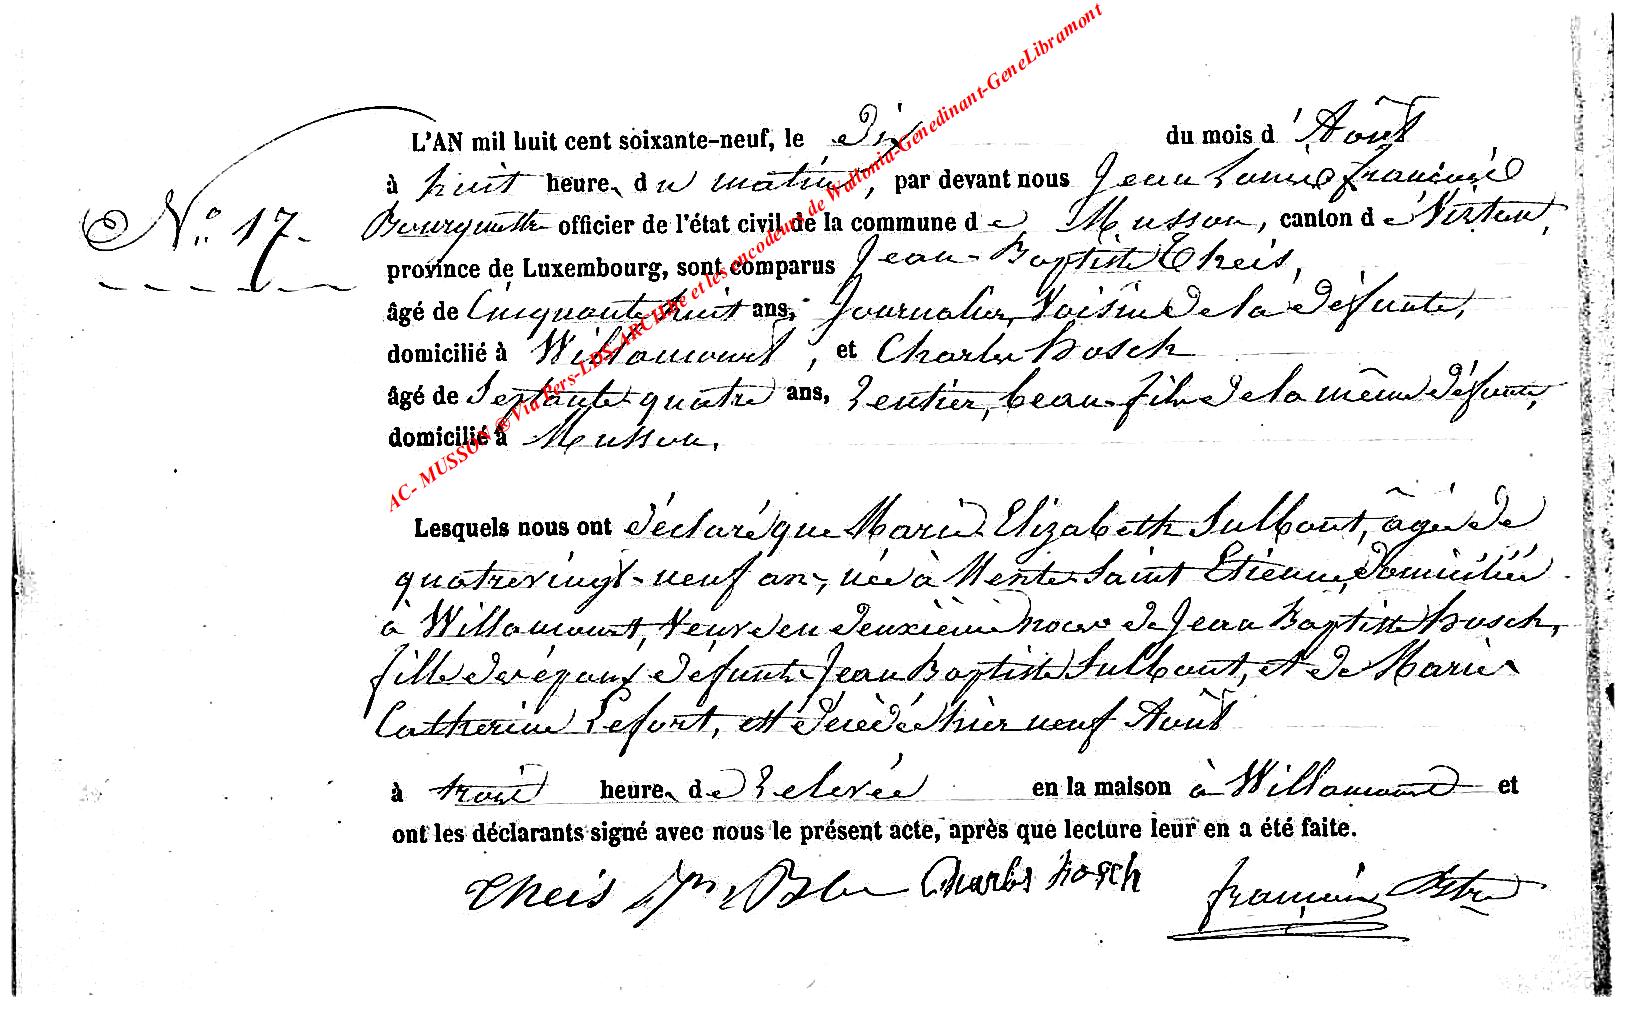 AC- MUSSON @Via Pers-LDS-ARCHhe et les encodeurs de Wallonia-Genedinant-GeneLibramont
L'AN mil huit cent soixante-neuf, le Dix du mois d'Août
N° 17.
à huit heures du matin, par devant nous Jean Louis François
officier de l'état civil de la commune de Musson, canton de Virton,
province de Luxembourg, sont comparus Jean-Baptiste Theis,
âgé de Cinquante huit ans, Journalier, Voisin de la défunte,
domicilié à Willancourt, et Charles Hosch
âgé de Septante quatre ans, Rentier, beau-fils de la même défunte,
domicilié à Musson.
Lesquels nous ont déclaré que Marie Elizabeth Sulbout, âgée de
quatrevingt-neuf ans, née à Saint Etienne, domiciliée
à Willancourt, Veuve en deuxième noces de Jean Baptiste Hosch,
fille des époux défunts Jean Baptiste Sulbout, et de Marie
Catherine Lefort, est décédée hier neuf Août
à trois heures de Relevée en la maison à Willancourt et
ont les déclarants signé avec nous le présent acte, après que lecture leur en a été faite.
Theis Charles Hosch François